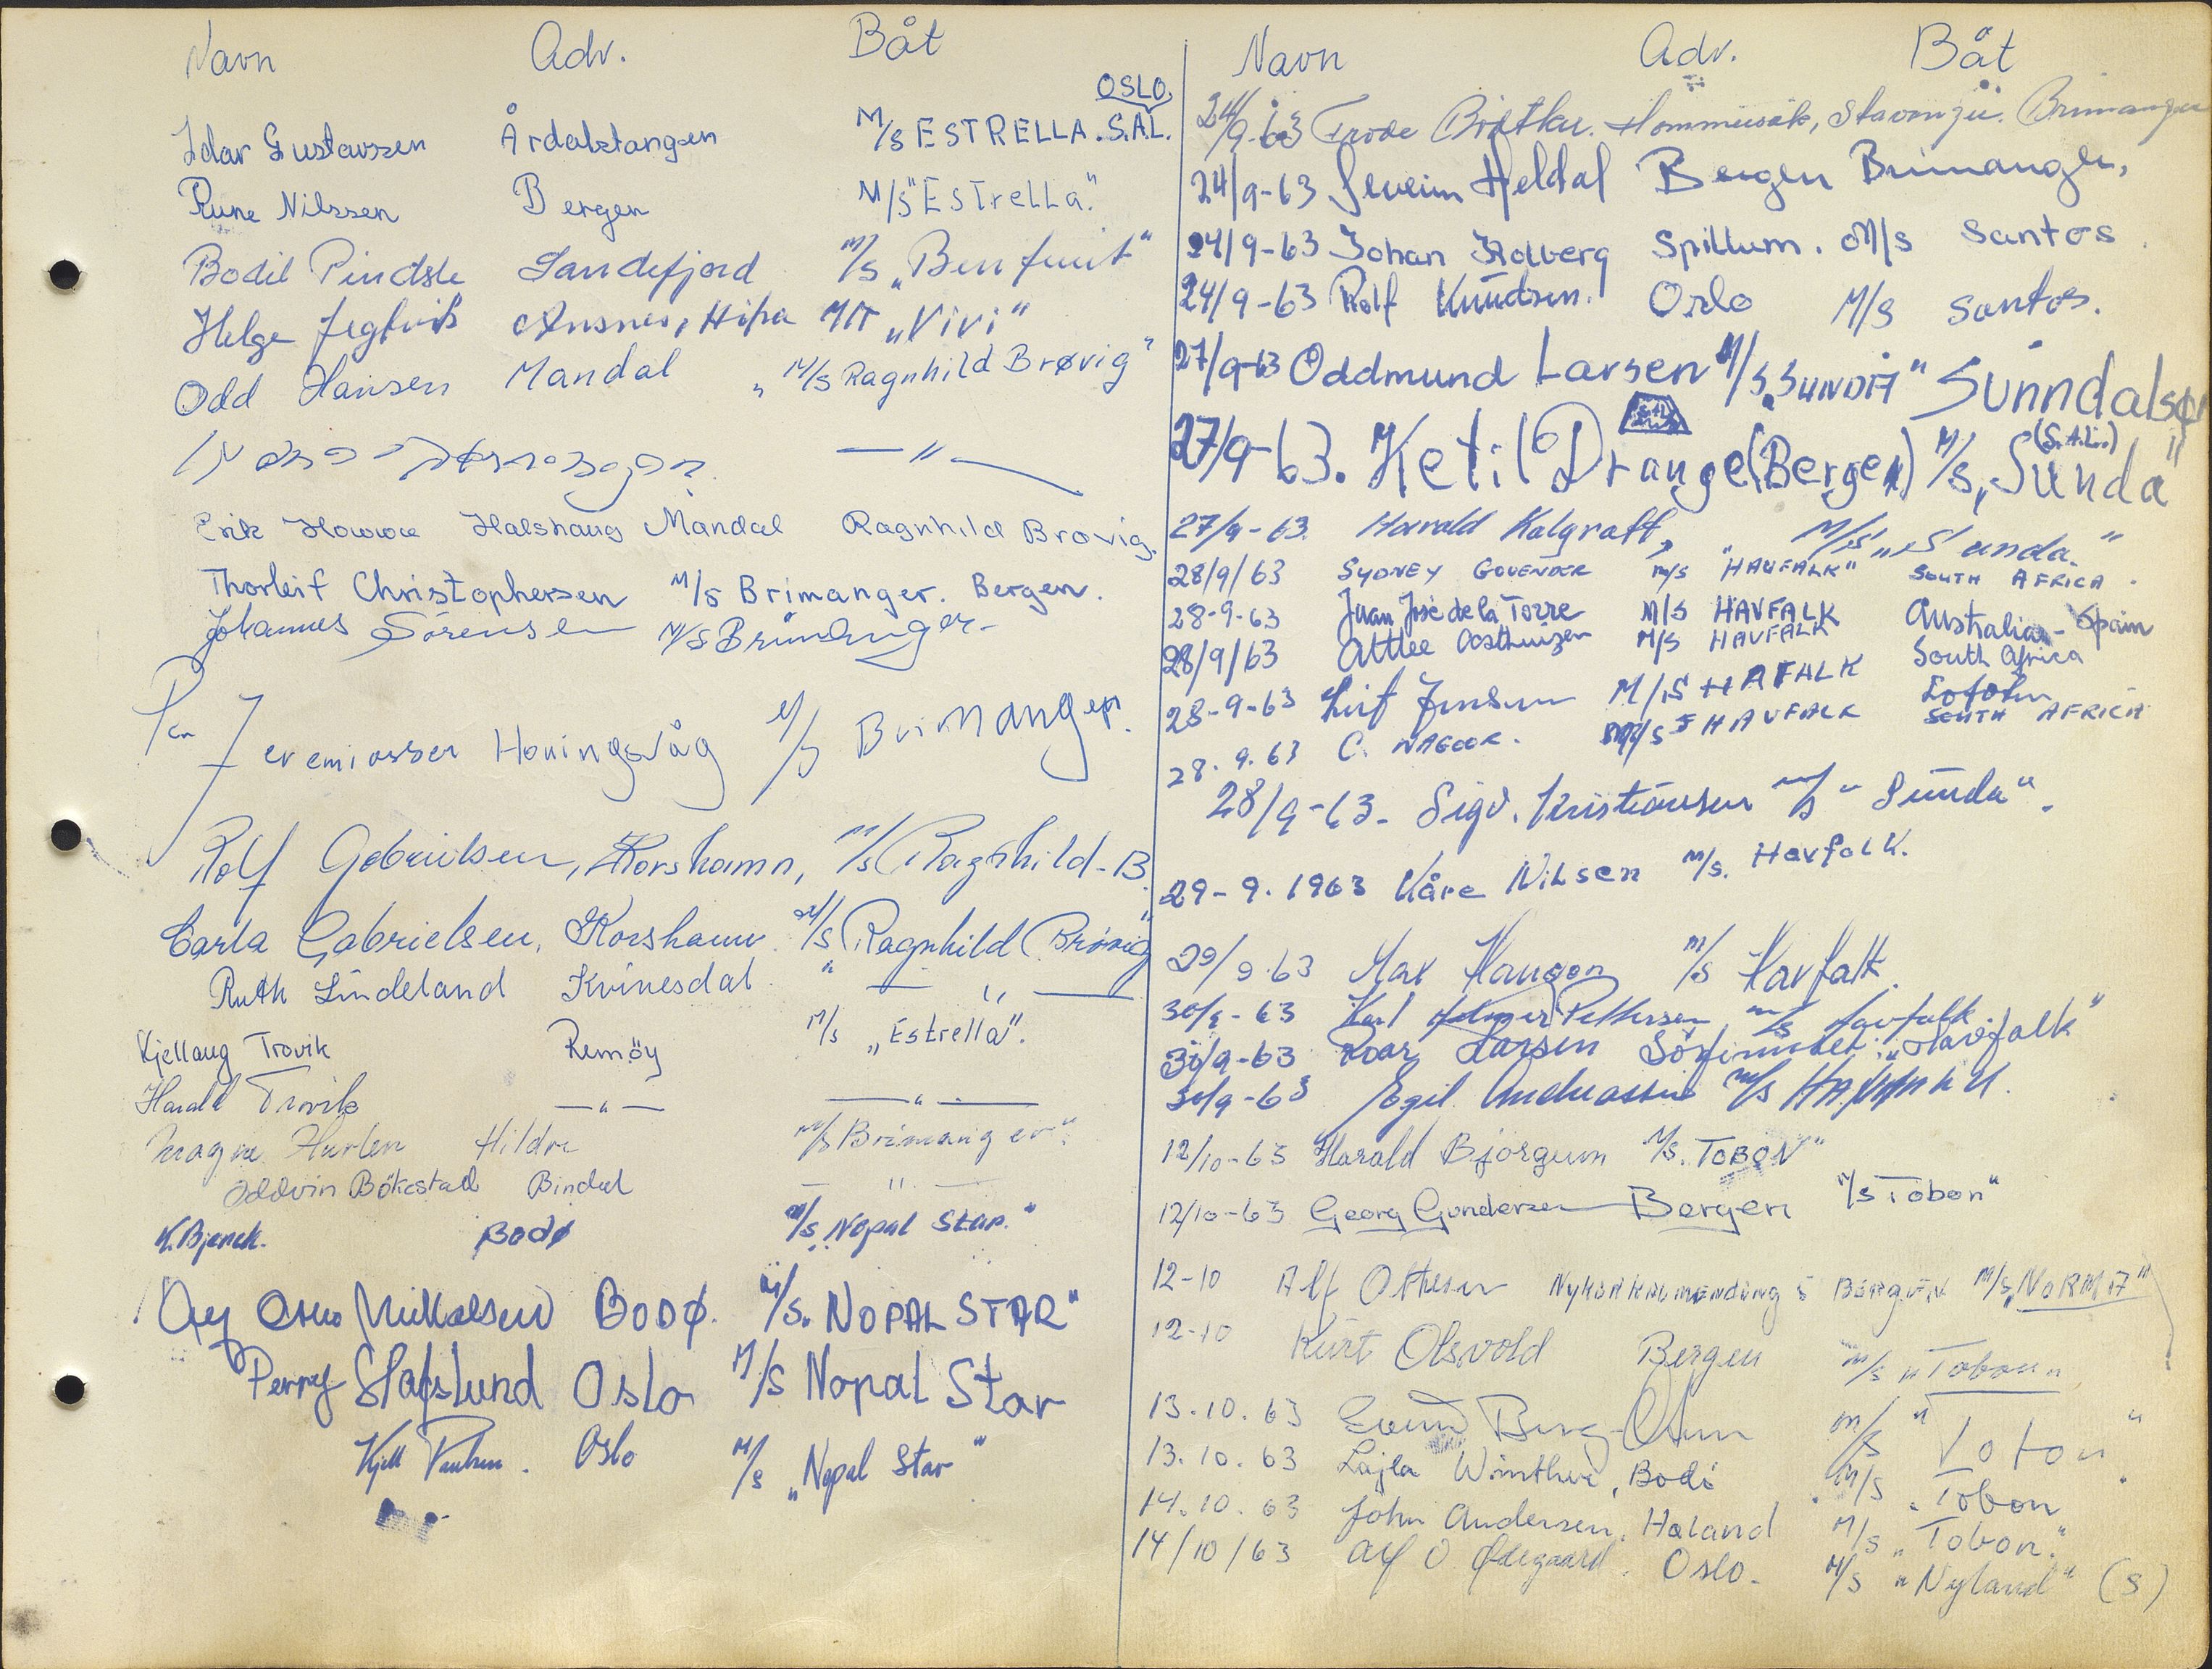 Navn Adr. Båt
Idar Gustavssen Årdalstangen M/S ESTRELLA. S.A.L. OSLO.
Rune Nilssen Bergen M/S "Estrella."
Bodil Pindsle Sandefjord M/S „Benfruit"
Helge M/T „Vivi"
Odd Hansen Mandal „M/S Ragnhild Brøvig"
— " —
Erik Halshaug Mandal Ragnhild Brøvig.
Thorleif Christophersen M/S Brimanger. Bergen.
Johannes Sörensen M/S Brimanger-
Per Jeremiassen Honingsvåg M/S Brimanger.
Rolf Gabrielsen, Korshamn, M/S Ragnhild-B.
Carla Gabrielsen, Korshamn. M/S Ragnhild Brøvig"
Ruth Lindeland Kvinesdal. " — " —
Kjellaug Trovik Remöy M/S „Estrella".
Harald Trovik — " — — " —
Magne Hurlen Hildre M/S Brimanger".
Oddvin Bökestad Bindal — " —
K. Bjerck. Bodø M/S. Nopal Star."
Mikkelsen BODØ. M/S. NOPAL STAR"
Perry Hafslund Oslo M/S Nopal Star
Kjell Paulsen. Oslo M/S „Nopal Star"
Navn Adr. Båt
24/9-63 Frode Hommersåk, Stavanger. Brimanger
24/9-63 Heldal Bergen Brimanger,
24/9-63 Johan Spillum. M/S Santos.
24/9-63 Rolf Knudsen. Oslo M/S Santos.
27/9-63 Oddmund Larsen M/S „SUNDA" Sunndalsør
27/9-63. Ketil Drange (Bergen) M/S, Sunda" (S.A.L.)
27/9-63. Harald Kalgraff, M/S „Sunda."
28/9/63 SYDNEY GOVENDER M/S "HAVFALK" SOUTH AFRICA.
28-9-63 Juan José de la Torre M/S HAVFALK Australia - Spain
28/9/63 Attlee Oosthuizen M/S HAVFALK South Africa
28-9-63 Leif Jensen M/S HAFALK Lofoten
28.9.63 C. NAGOOR. M/S HAVFALK SOUTH AFRICA
28/9-63. Sigv. Kristiansen M/S „Sunda".
29-9.1963 Kåre Nilsen M/S. Havfalk.
29/9.63 Max Haugen M/S Havfalk.
30/9-63 Karl Pettersen M/S Havfalk
30/9-63 Roar Larsen „Havfalk"
30/9-63 Egil Andreassen M/S
12/10-63 Harald Bjørgum M/S. TOBON"
12/10-63 Georg Gundersen Bergen M/S Tobon"
12-10 Alf Ottesen Bergen M/S „NORMA"
12-10 Kurt Olsvold Bergen M/S „Tobon"
13.10.63 M/S "Tobon"
13.10.63 Lajla Winther, Bodö M/S „Tobon"
14.10.63 John Andersen, Haland M/S „Tobon."
14/10/63 Alf O. Ødegaard. Oslo. M/S „Nyland" (S)